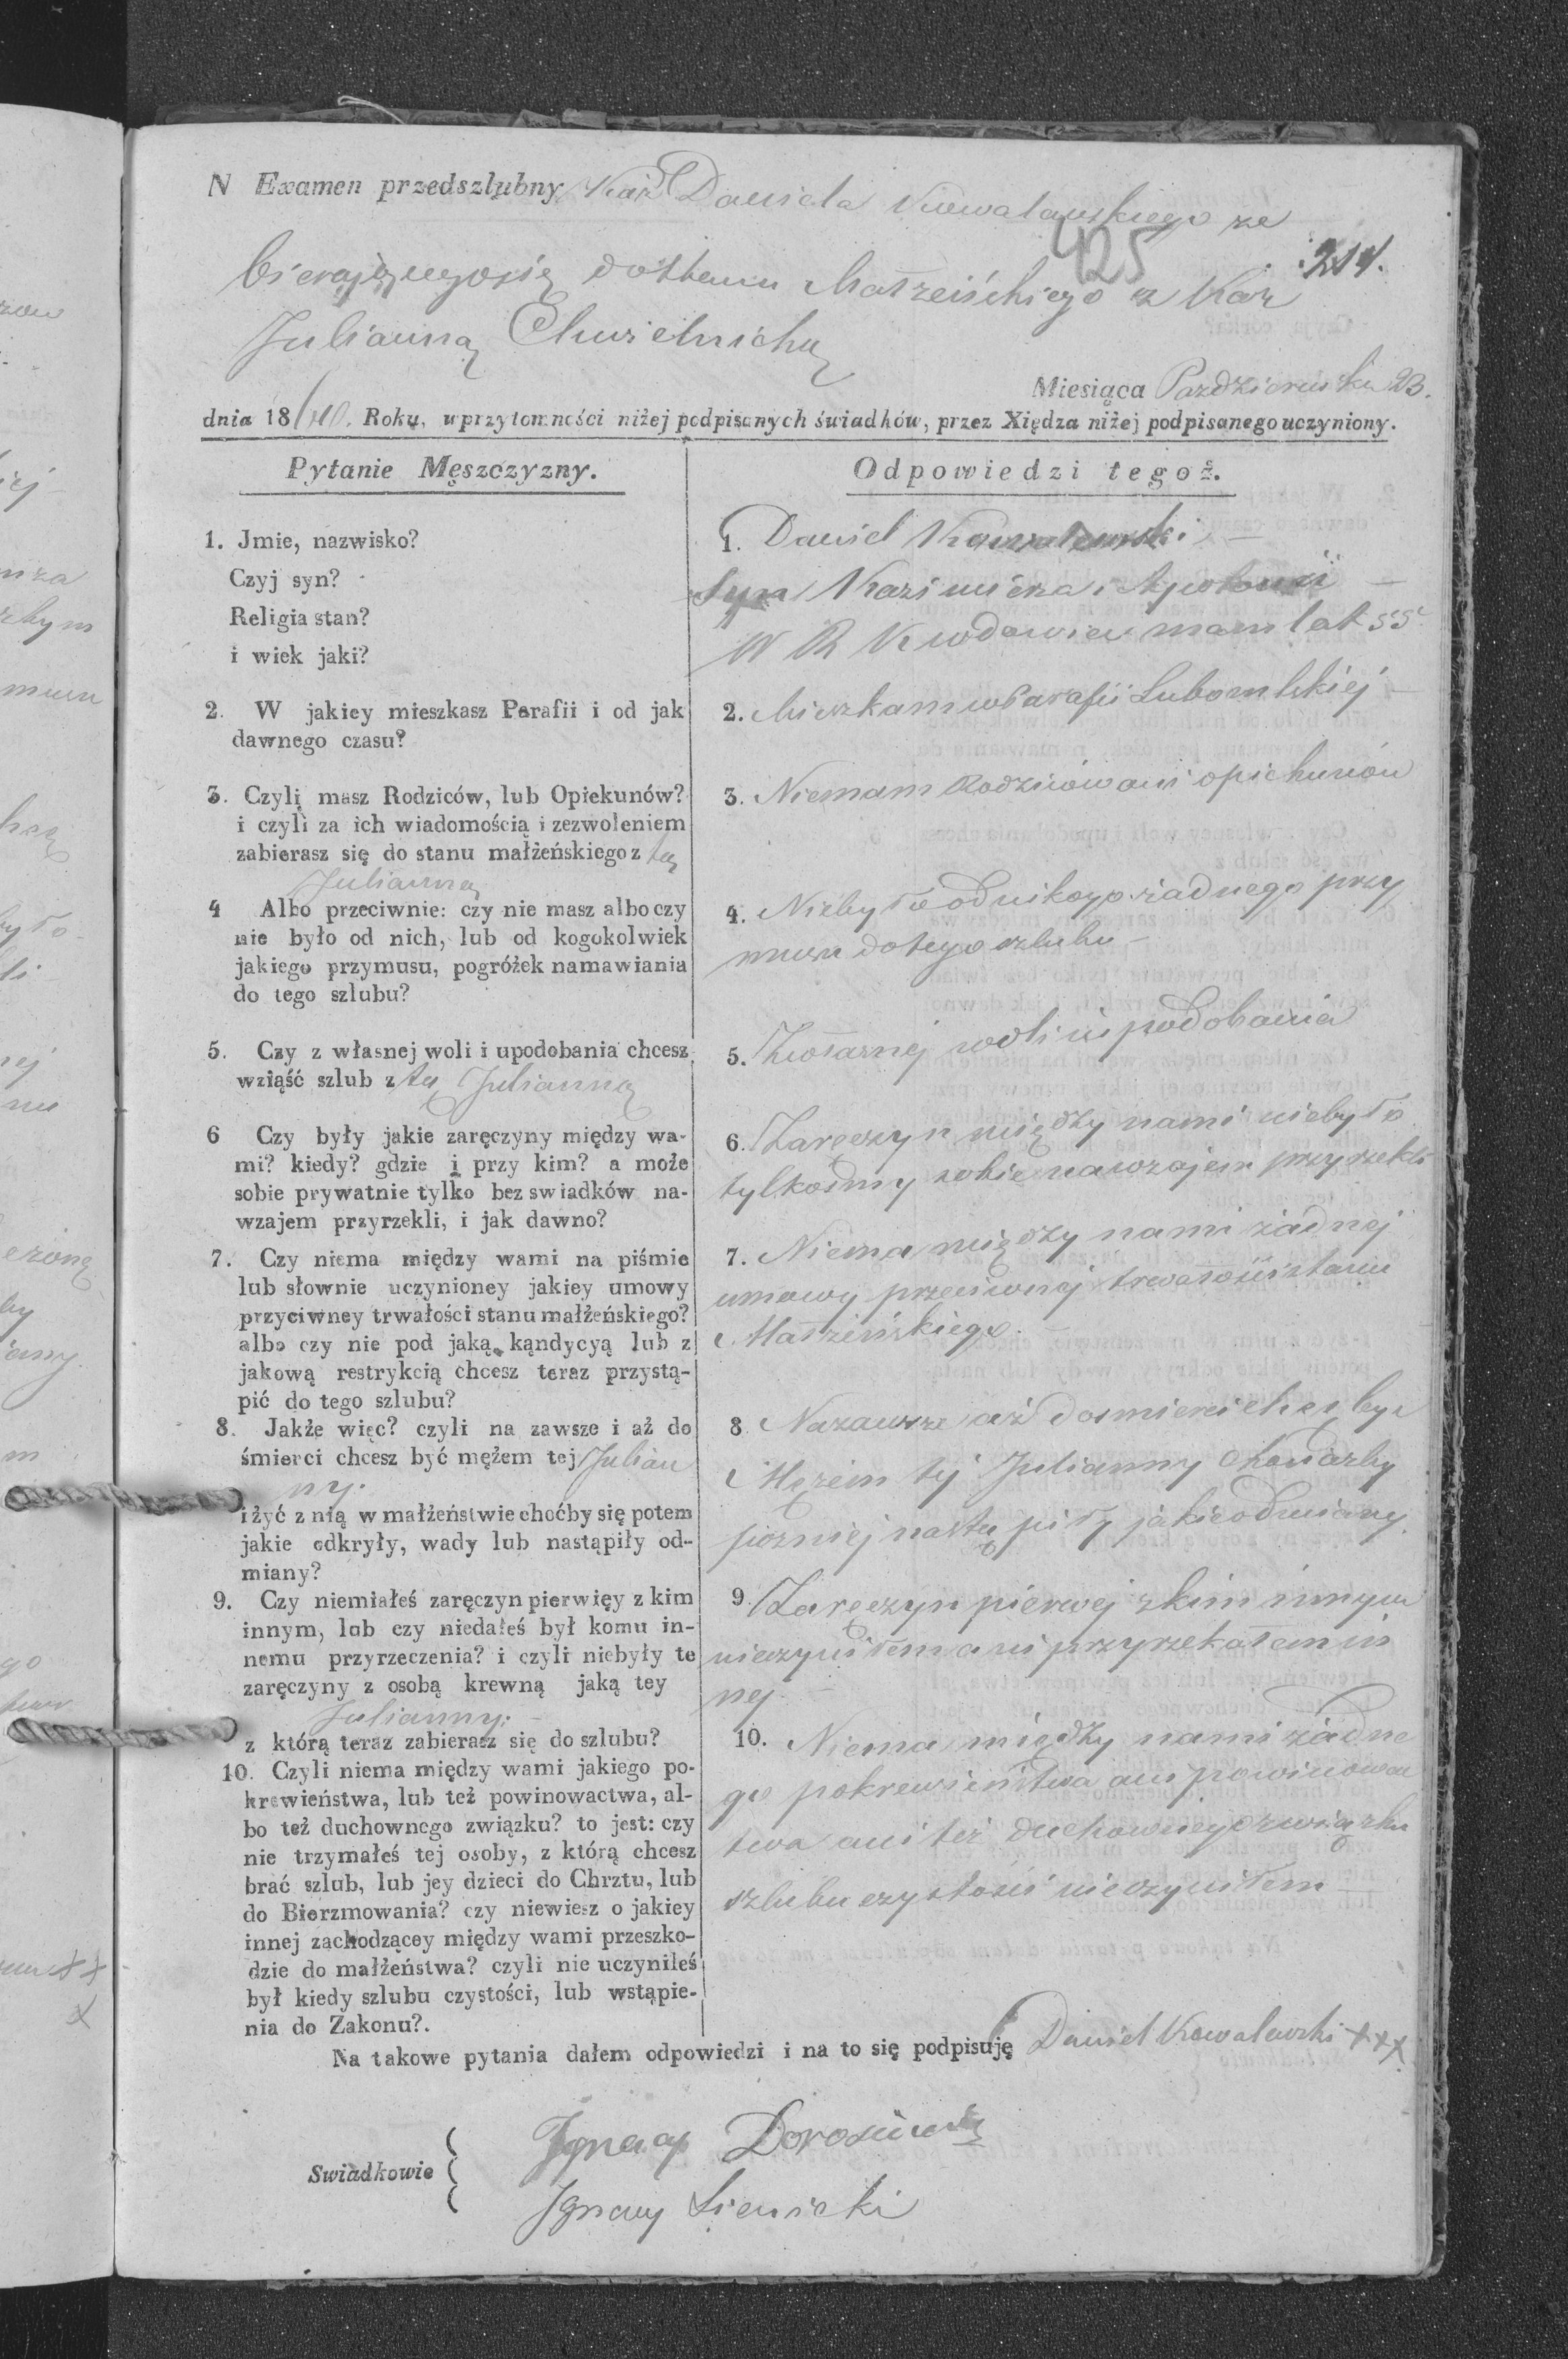 N Examen przedszlubny Kaź Daniela Kowalawskiego za
425
bierającegosię dostanu Małżeńskiego z Kaz
:214.
Julianną Chwielnicką
Miesiąca Pazdziernika 23.
dnia 1840. Roku, w przytomności niżej podpisanych świadków, przez Xiędza niżej podpisanego uczyniony.
Pytanie Męszczyzny.
1. Jmie, nazwisko?
Czyj syn?
Religia stan?
i wiek jaki?
2. W jakiey mieszkasz Parafii i od jak
dawnego czasu?
3. Czyli masz Rodziców, lub Opiekunów?
i czyli za ich wiadomością i zezwoleniem
zabierasz się do stanu małżeńskiego z tą
Julianną
4 Albo przeciwnie: czy nie masz albo czy
nie było od nich, lub od kogokolwiek
jakiego przymusu, pogróżek namawiania
do tego szlubu?
5. Czy z własnej woli i upodobania chcesz
wziąść szlub z tą Julianną
6 Czy były jakie zaręczyny między wa-
mi? kiedy? gdzie i przy kim? a może
sobie prywatnie tylko bez swiadków na-
wzajem przyrzekli, i jak dawno?
7. Czy niema między wami na piśmie
lub słownie uczynioney jakiey umowy
przyciwney trwałości stanu małżeńskiego?
albo czy nie pod jaką kąndycyą lub z
jakową restrykcią chcesz teraz przystą-
pić do tego szlubu?
8. Jakże więc? czyli na zawsze i aż do
śmierci chcesz być mężem tej Julian
ny.
i żyć z nią w małżeństwie choćby się potem
jakie odkryły, wady lub nastąpiły od-
miany?
9. Czy niemiałeś zaręczyn pierwięy z kim
innym, lub czy niedałeś był komu in-
nemu przyrzeczenia? i czyli niebyły te
zaręczyny z osobą krewną jaką tey
Julianny.
z którą teraz zabierasz się do szlubu?
10. Czyli niema między wami jakiego po-
krewieństwa, lub też powinowactwa, al-
bo też duchownego związku? to jest: czy
nie trzymałeś tej osoby, z którą chcesz
brać szlub, lub jey dzieci do Chrztu, lub
do Bierzmowania? czy niewiesz o jakiey
innej zachodzącey między wami przeszko-
dzie do małżeństwa? czyli nie uczyniłeś
był kiedy szlubu czystości, lub wstąpie-
nia do Zakonu?.
Odpowiedzi tegoż.
1. Daniel Kowalewski
Syn Kazimierza i Apolonii
W R K wdowiec mam lat 55
2. Mieszkam w Parafii Lubomlskiej
3. Niemam Rodziców ani opiekunów
4. Niebyło od nikogo żadnego przy
musu do tego szlubu
5. Zwłasnej woli i upodobania
6. Zaręczyn między nami niebyło
tylkośmy sobie nawzajem przyrzekli
7. Niema między nami żadnej
umowy przeciwnej trwałości stanu
Małżeńskiego.
8 Nazawsze aż do smierci chcę być
Mężem tej Julianny chociażby
pozniej nastąpiły jakie odmiany.
9. Zaręczyn pierwej zkim innym
nieczyniłem ani przyrzekałem in
nej
10. Niema między nami żadne
go pokrewieństwa ani powinowac
twa ani też duchownego związku
szlubu czystości nieczyniłem
Na takowe pytania dałem odpowiedzi i na to się podpisuję Daniel Kowalawski +++
Swiadkowie
Ignacy Dorosiewicz
Ignacy Sienicki